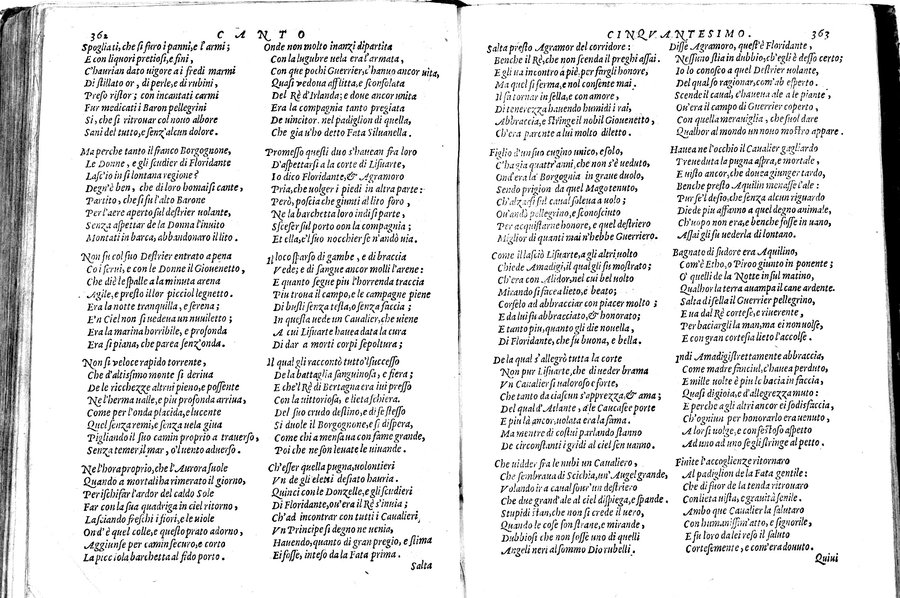 362 CANTO
Spogliati, che ſi furo i panni, e l'armi;
E con liquori pretioſi, e fini,
C'haurian dato vigore ai fredi marmi
Di ſtillato or, di perle, e di rubini,
Preſo riſtor; con incantati carmi
Fur medicati i Baron pellegrini
Sì, che ſi ritrouar col nouo albore
Sani del tutto, e ſenz'alcun dolore.
Ma perche tanto il franco Borgognone,
Le Donne, e gli ſcudier di Floridante
Laſc'io in ſi lontana regione?
Degn'è ben, che di loro homai ſi cante,
Partito, che ſi fu l'alto Barone
Per l'aere aperto ſul deſtrier uolante,
Senza aſpettar de la Donna l'inuito
Montati in barca, abbandonaro il lito.
Non fu col ſuo Deſtrier entrato a pena
Co i ſerui, e con le Donne il Giouenetto,
Che diè le ſpalle a la minuta arena
Agile, e preſto il lor picciol legnetto.
Era la notte tranquilla, e ſerena;
E'n Ciel non ſi uedeua un nuuiletto;
Era la marina horribile, e profonda
Era ſi piana, che parea ſenz'onda.
Non ſi veloce rapido torrente,
Che d'altiſſimo monte ſi deriua
De le ricchezze altrui pieno, e poſſente
Ne l'herma ualle, e piu profonda arriua,
Come per l'onda placida, e lucente
Quel ſenza remi, e ſenza uela giua
Pigliando il ſuo camin proprio a trauerſo,
Senza temer il mar, o'l uento aduerſo.
Ne l'hora proprio, che l'Aurora ſuole
Quando a mortali ha rimenato il giorno,
Per iſchifar l'ardor del caldo Sole
Far con la ſua quadriga in ciel ritorno,
Laſciando freſchi i fiori, e le uiole
Ond'è quel colle, e queſto prato adorno,
Aggiunſe per camin ſecuro, e corto
La picciola barchetta al fido porto.
Onde non molto inanzi dipartita
Con la lugubre uela era l'armata,
Con que pochi Guerrier, c'hauno ancor uita,
Quaſi vedoua afflitta, e ſconſolata
Del Rè d'Irlanda; e doue ancor unita
Era la compagnia tanto pregiata
De uincitor. nel padiglion di quella,
Che gia u'ho detto Fata Siluanella.
Promeſſo queſti duo s'haueano fra loro
D'aſpettarſi a la corte di Liſuarte,
Io dico Floridante, & Agramoro
Pria, che uolger i piedi in altra parte:
Però, poſcia che giunti al lito foro,
Ne la barchetta loro indi ſi parte,
Sceſer ſul porto con la compagnia;
Et ella, e'l ſuo nocchier ſe n'andò uia.
Il loco ſparſo di gambe, e di braccia
Vede; e di ſangue ancor molli l'arene:
E quanto ſegue piu l'horrenda traccia
Piu troua il campo, e le campagne piene
Di buſti ſenza teſta, o ſenza faccia;
In queſta uede un Caualier, che uiene
A cui Liſuarte hauea data la cura
Di dar a morti corpi ſepoltura;
Il qual gli raccontò tutto'l ſucceſſo
De la battaglia ſanguinoſa, e fiera;
E che'l Rè di Bertagna era iui preſſo
Con la uittorioſa, e lieta ſchiera.
Del ſuo crudo deſtino, e di ſe ſteſſo
Si duole il Borgognone, e ſi diſpera,
Come chi a menſa ua con fame grande,
Poi che ne ſon leuate le uiuande.
Ch'eſſer quella pugna, uolontieri
Vn de gli elemi deſiato hauria.
Quinci con Donzelle, e gli ſcudieri
Di Floridante, ou'era il Rè s'inuia;
Ch'ad incontrar con tutti i Caualieri
Vn Principe ſi degno ne uenia,
Hauendo, quanto di gran pregio, e ſtima
Ei foſſe, inteſo da la Fata prima.
Salta
CINQVANTESIMO. 363
Salta preſto Agramor del corridore:
Benche il Rè, che non ſcenda il preghi aſſai.
E gli ua incontro a piè, per fargli honore,
Ma quel ſi ferma, e nol conſente mai.
Il fa tornar in ſella, e con amore,
Di tenerezza hauendo humidi i rai,
Abbraccia, e ſtringe il nobil Giouenetto,
Ch'era parente a lui molto diletto.
Figlio d'un ſuo cugino unico, e ſolo,
C'ha gia quatr'anni, che non s'è ueduto,
Ond'era la Borgognia in graue duolo,
Sendo prigion da quel Mago tenuto,
Ch'alzaſſi ſul caual ſoleua a uolo;
Qu'andò pellegrino, e ſconoſciuto
Per acquiſtarne honore, e quel deſtriero
Miglior di quanti mai n'hebbe Guerriero.
Come il laſciò Liſuarte, a gli altri uolto
Chiede Amadigi, il qual gli fu moſtrato;
Ch'era con Alidor, nel cui bel uolto
Mirando ſi facea lieto, e beato;
Corſelo ad abbracciar con piacer molto;
E da lui fu abbracciato, & honorato;
E tanto piu, quanto gli die nouella,
Di Floridante, che fu buona, e bella.
De la qual s'allegrò tutta la corte
Non pur Liſuarte, che di ueder brama
Vn Caualier ſi ualoroſo e forte,
Che tanto da ciaſcun s'apprezza, & ama;
Del qual d'Atlante, a le Caucaſee porte
E piu là ancor, uolata era la fama.
Ma mentre di coſtui parlando ſtanno
De circonſtanti i gridi al ciel ſen uanno.
Che uidder fra le nubi un Caualiero,
Che ſembraua di Scithia, un'Augel grande,
Volando ir a caual ſour'un deſtriero
Che due grand'ale al ciel diſpiega, e ſpande.
Stupidi ſtan, che non ſi crede il uero,
Quando le coſe ſon ſtrane, e mirande,
Dubbioſi che non foſſe uno di quelli
Angeli neri al ſommo Dio rubelli.
Diſſe Agramoro, queſt'è Floridante,
Neſſuno ſtia in dubbio, ch'egli è deſſo certo;
Io lo conoſco a quel Deſtrier uolante,
Del qualſo ragionar, com'ab eſperto.
Scende il caual, c'hauea e ale a le piante,
Ou'era il campo di Guerrier coperto,
Con quella merauiglia, che ſuol dare
Qualhor al mondo un nouo moſtro appare.
Hauea ne l'occhio il Caualier gagliardo
Tre ueduta la pugna aſpra, e mortale,
E uiſto ancor, che douea giunger tardo,
Benche preſto Aquilin menaſſe l'ale:
Pur ſe'l deſio, che ſenza alcun riguardo
Diede piu affanno a quel degno animale,
Ch'uopo non era, e benche foſſe in uano,
Aſſai gli fu uederla di lontano.
Bagnato di ſudore era Aquilino,
Com'è Etho, o Piroo giunto in ponente;
O quelli de la Notte in ſul matino,
Qualhor la terra auampa il cane ardente.
Salta di ſella il Guerrier pellegrino,
E ua dal Rè corteſe, e riuerente,
Per baciargli la man, ma ei non uolſe,
E con gran corteſia lieto l'accolſe.
Indi Amadigi ſtrettamente abbraccia,
Come madre fanciul, c'hauea perduto,
E mille uolte è piu le bacia in faccia,
Quaſi di gioia, e d'allegrezza muto:
E perche a gli altri ancor ei ſodisfaccia,
Ch'ognun per honorarlo era uenuto,
A lor ſi uolge, e con feſtoſo aſpetto
Ad uno ad uno ſe gli ſtringe al petto.
Finite l'accoglienze ritornaro
Al padiglion de la Fata gentile:
Che di fuor de la tenda ritrouaro
Con lieta uiſta, e grauità ſenile.
Ambo que Caualier la ſalutaro
Con humaniſſim'atto, e ſignorile,
E fu loro da lei reſo il ſaluto
Corteſemente, e com'era douuto.
Quiui